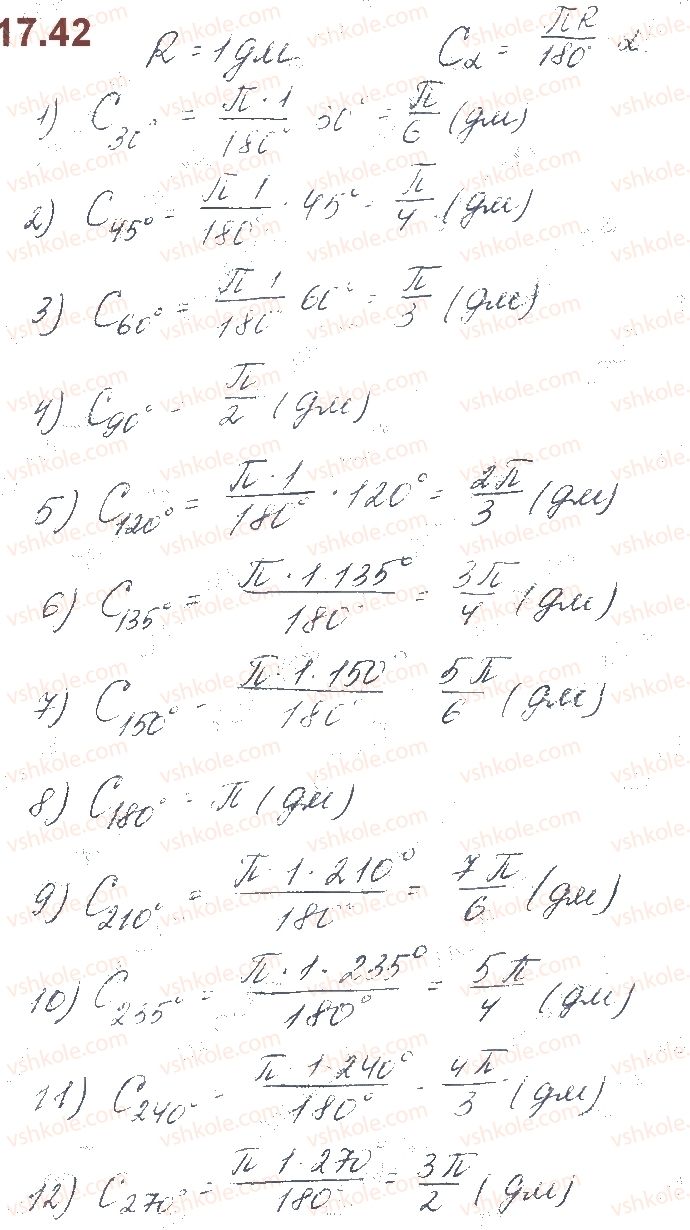 17.42
R = 1 дм. C_α = πR/180° α
1) C_30° = π·1/180° 30° = π/6 (дм)
2) C_45° = π 1/180° · 45° - π/4 (дм)
3) C_60° = π 1/180° 60° = π/3 (дм)
4) C_90° - π/2 (дм)
5) C_120° = π·1/180° · 120° = 2π/3 (дм)
6) C_135° = π·1·135°/180° = 3π/4 (дм)
7) C_150° - π·1·150°/180° 5π/6 (дм)
8) C_180° - π (дм)
9) C_210° = π·1·210°/180° = 7π/6 (дм)
10) C_235° = π·1·235°/180° = 5π/4 (дм)
11) C_240° - π·1·240°/180° - 4π/3 (дм)
12) C_270° = π 1·270°/180° = 3π/2 (дм)
vshkole.com